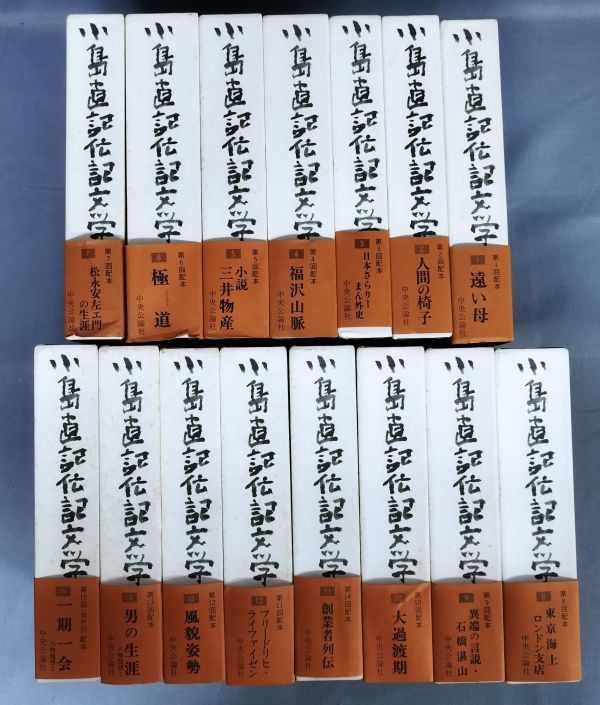 小島直記伝記文学
1
第1回配本
遠い母
中央公論社
小島直記伝記文学
2
第2回配本
人間の椅子
中央公論社
小島直記伝記文学
3
第3回配本
日本さらりー
まん外史
中央公論社
小島直記伝記文学
4
第4回配本
福沢山脈
中央公論社
小島直記伝記文学
5
第5回配本
小説
三井物産
中央公論社
小島直記伝記文学
6
第6回配本
極道
中央公論社
小島直記伝記文学
7
第7回配本
松永安左エ門
の生涯
中央公論社
小島直記伝記文学
8
第8回配本
東京海上
ロンドン支店
中央公論社
小島直記伝記文学
9
第9回配本
異端の言説・
石橋湛山
中央公論社
小島直記伝記文学
10
第10回配本
大過渡期
中央公論社
小島直記伝記文学
11
第14回配本
創業者列伝
中央公論社
小島直記伝記文学
12
第11回配本
フリードリヒ・
ライファイゼン
中央公論社
小島直記伝記文学
13
第12回配本
風貌姿勢
中央公論社
小島直記伝記文学
14
第13回配本
男の生涯
人物随想1
中央公論社
小島直記伝記文学
15
第15回
配本
一期一会
人物随想2
中央公論社